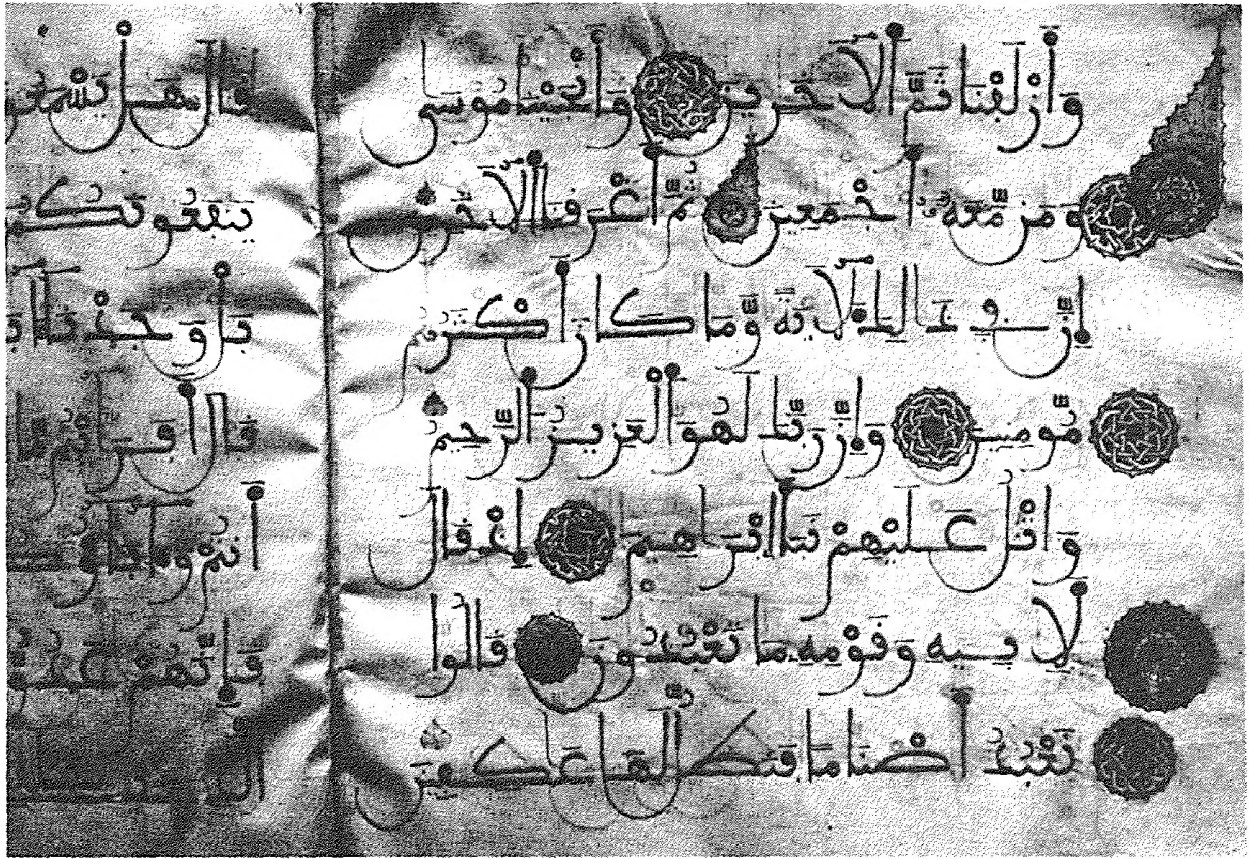 وَأَزْلَفْنَا ثَمَّ اَ۬لَاخَرِينَ وَأَنْجَيْنَا مُوسَى
وَمَن مَّعَهُۥ أَجْمَعِينَ ثُمَّ أَغْرَقْنَا اَ۬لَاخَرِينَ
إِنَّ فِي ذَٰلِكَ لَأٓيَةً وَمَا كَانَ أَكْثَرُهُم
مُّومِنِينَ وَإِنَّ رَبَّكَ لَهُوَ اَ۬لْعَزِيزُ اُ۬لرَّحِيمُ
وَاتْلُ عَلَيْهِمْ نَبَأَ اِ۬بْرَٰهِيمَ إِذْ قَالَ
لِأَبِيهِ وَقَوْمِهِۦ مَا تَعْبُدُونَ قَالُوا
نَعْبُدُ أَصْنَامًا فَنَظَلُّ لَهَا عَٰكِفِينَ
قَالَ هَلْ
يَنفَعُونَكُ
بَلْ وَجَدْنَا
قَالَ
أَنتُمْ
فَإِنَّهُمْ عَدُوٌّ